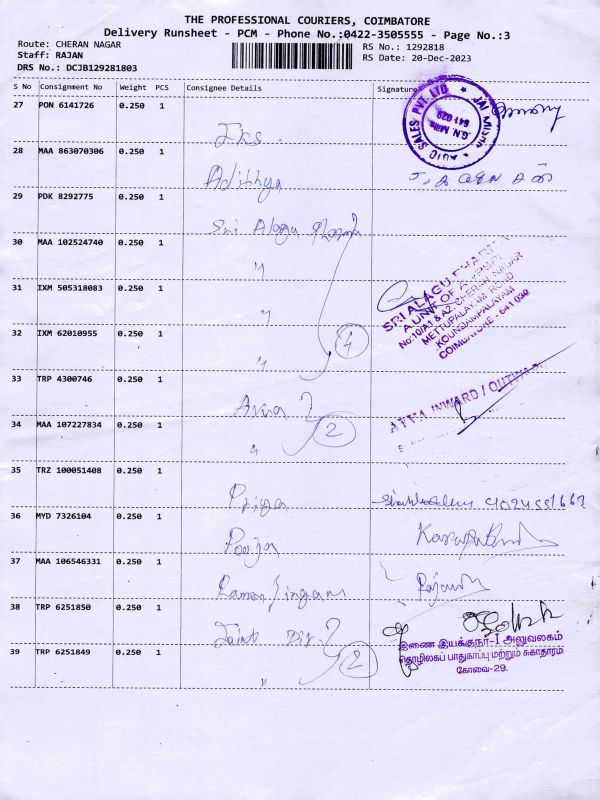 THE PROFESSIONAL COURIERS, COIMBATORE
Delivery Runsheet - PCM - Phone No.:0422-3505555 - Page No.:3
Route: CHERAN NAGAR
RS No.: 1292818
Staff: RAJAN
RS Date: 20-Dec-2023
DRS No.: DCJB129281803
S No Consignment No Weight PCS Consignee Details Signature
27 PON 6141726 0.250 1
AUTO SALES PVT. LTD * JAI
G.N. Mills
641 029
28 MAA 863070306 0.250 1 Adithya
29 PDK 8292775 0.250 1 Sri Alagu Pharma
30 MAA 102524740 0.250 1 "
31 IXM 505318083 0.250 1 "
SRI ALAGU PHARMA
A UNIT OF
No:10/A1 & A2, CHERAN NAGAR
METTUPALAYAM ROAD
KOUNDAMPALAYAM
COIMBATORE - 641 030
32 IXM 62010955 0.250 1 "
4
33 TRP 4300746 0.250 1
INWARD / OUTWARD
34 MAA 107227834 0.250 1 "
2
35 TRZ 100051408 0.250 1 Priya
36 MYD 7326104 0.250 1 Pooja
37 MAA 106546331 0.250 1
38 TRP 6251850 0.250 1 Joint Dir.
இணை இயக்குநர்-I அலுவலகம்
தொழிலகப் பாதுகாப்பு மற்றும் சுகாதாரம்
கோவை-29.
39 TRP 6251849 0.250 1 "
2